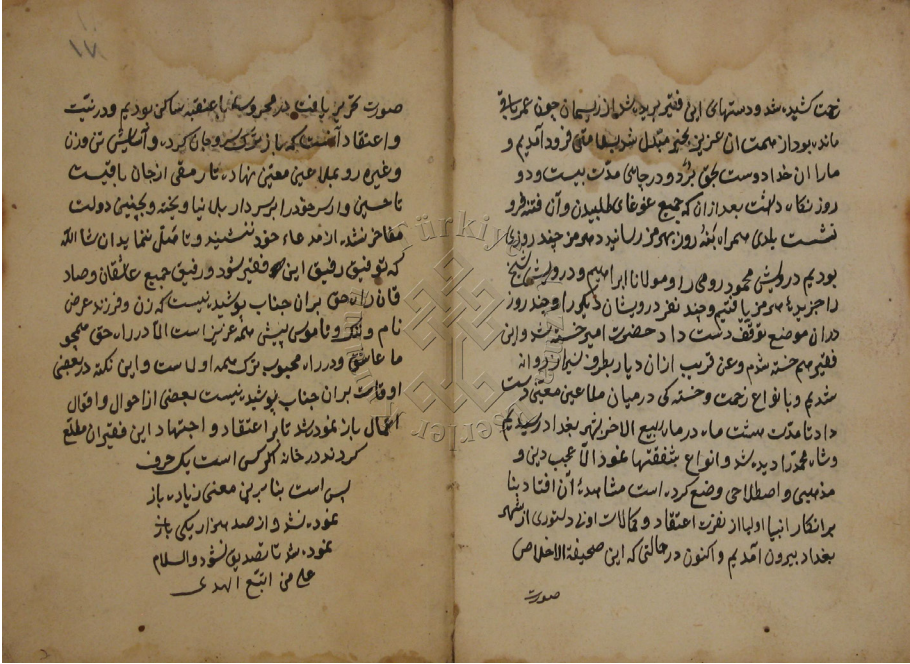 زحمت کشیده شد و دستهای این فقیر بریده شد از ریسمان چون عمر باقی
مانده بود از همت آن عزیز بخیر مبدل شد بسلامتی فرود آمدیم و
ما را آن خدا دوست بحق برد و در جایی مدّت بیست و دو
روز نگاه داشت بعد از آن که جمیع غوغای طلبیدن و آن فتنه فرو
نشست بلدی همراه روز بهرمز رسانید در هرمز چند روزی
بودیم درویش محمود رومی را و مولانا ابراهیم و درویش شیخ
را جزیره هرمز یافتیم و چند نفر درویشان دیگر را و چند روز
در آن موضع توقف دست داد حضرت امیر خسته شد و این
فقیر هم خسته شدم و عن قریب از آن دیار بطرف شیراز روانه
شدیم و با انواع زحمت و خستگی در میان ملاعین معیّن دست
داد تا مدّت شش ماه در ماه ربیع الاخر بشهر بغداد رسیدیم
و شاه محمد را دیده شد و انواع شفقتها نمود الّا عجب دینی و
مذهبی و اصطلاحی وضع کرده است مشاهدهٔ آن افتاد بنا
بر انکار انبیا و اولیا از نفرت اعتقاد و کمالات او از شهر
بغداد بیرون آمدیم و اکنون در حالتی که این صحیفة الاخلاص
صورت
۱۷
صورت تحریر یافت در محروسه ساکن بودیم و در نیّت
و اعتقاد آنست که باز ترک سر و جان کرده و آسایش تن و زن
و غیره رو بملاعین معیّن نهاده تا رمقی از جان باقیست
تا مفاخر نشده از مدعاء خود ننشیند و تامّل ننماید ان شا الله
که توفیق رفیق این فقیر شود و رفیق جمیع عاشقان و صاد
قان راه حق بر آن جناب پوشیده نیست که زن و فرزند و عرض
نام و ننگ و ناموس پیش همه عزیز است الّا در راه حق همچو
ما عاشق و در راه محبوب ترک همه اولاست و این نکته در بعضی
اوقات بر آن جناب پوشیده نیست بعضی از احوال و اقوال
اعمال باز نموده شد تا بر اعتقاد و اجتهاد این فقیران مطلع
کردند در خانه اگر کس است یک حرف
بس است بنا برین معنی زیاده باز
نموده نشد و از صد هزار یکی باز
نموده شد تا تصدیق نشود والسلام
علی من اتبع الهدی